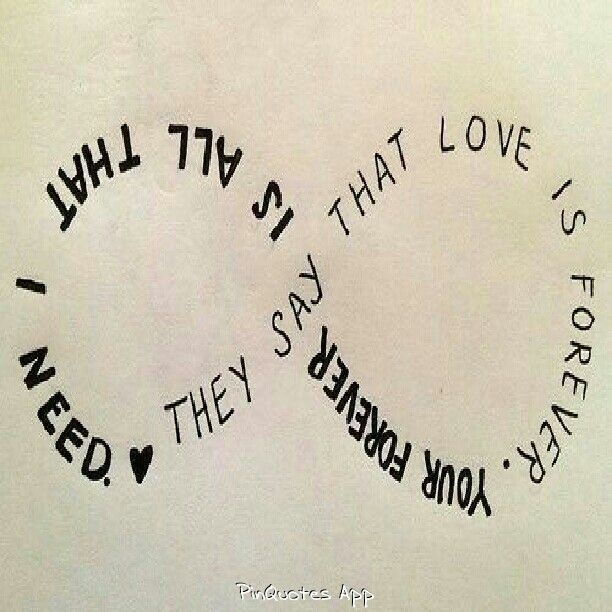 THEY SAY THAT LOVE IS FOREVER. YOUR FOREVER IS ALL THAT I NEED. ♥
PinQuotes App